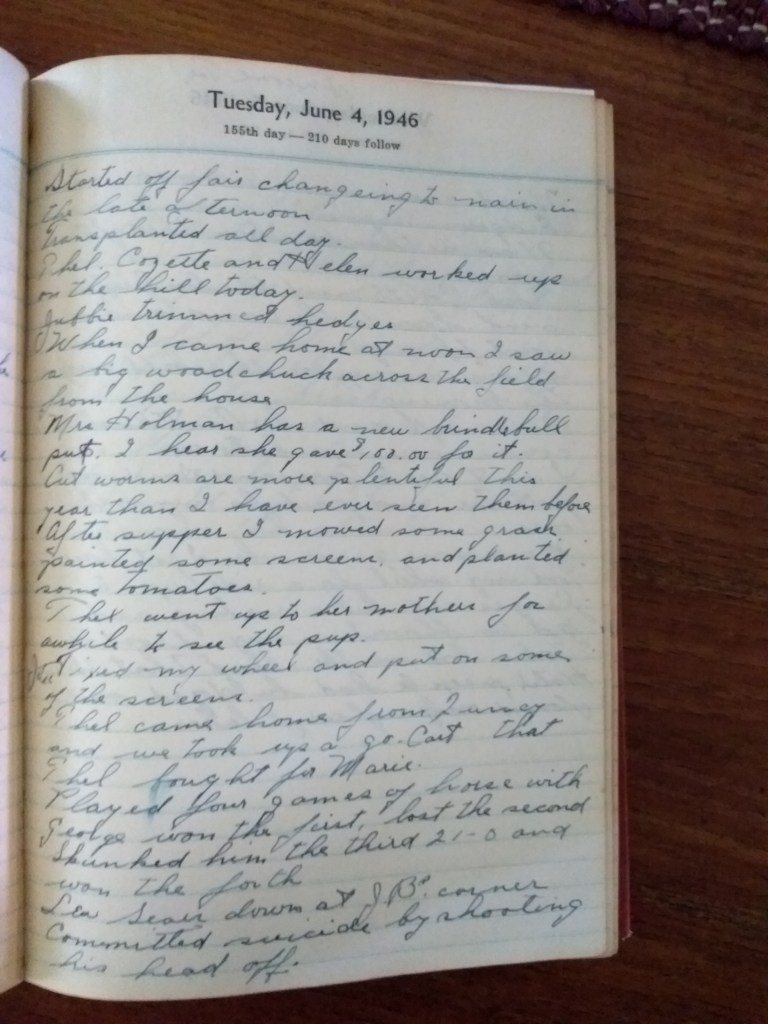 Tuesday, June 4, 1946
155th day — 210 days follow
Started off fair changeing to rain in
the late afternoon
transplanted all day.
Thel, Cozette and Helen worked up
on the hill today.
Jubbie trimmed hedges
When I came home at noon I saw
a big woodchuck across the field
from the house
Mrs Holman has a new brindle bull
pup. I hear she gave $100.00 fo it.
Cut worms are more plentiful this
year than I have ever seen them before
After supper I mowed some grass
painted some screens. and planted
some tomatoes.
Thel went up to her mothers for
awhile to see the pup.
Fixed my wheel and put on some
of the screens.
Thel came home from Quincy
and we took up a go-Cart that
Thel bought for Marie.
Played four games of horse with
George won the first, lost the second
Skunked him the third 21-0 and
won the forth
down at J.B's. corner
Committed suicide by shooting
his head off.